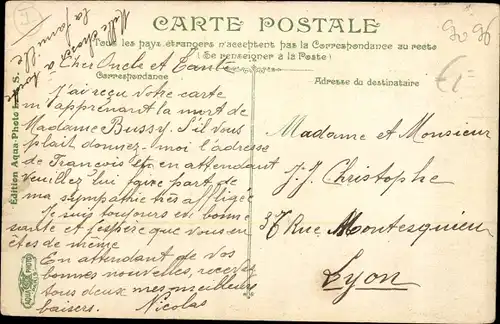 CARTE POSTALE
Tous les pays étrangers n'acceptent pas la Correspondance au recto
(Se renseigner à la Poste)
Correspondance
Adresse du destinataire
Mille choses à toute
la famille
Cher Oncle et Tante
J'ai reçu votre carte
m'apprenant la mort de
Madame Bussy. S'il vous
plait donnez-moi l'adresse
de François et en attendant
veuillez lui faire part de
ma sympathie très affligée
Je suis toujours en bonne
santé et j'espère que vous en
êtes de même
En attendant de vos
bonnes nouvelles, recevez
tous deux mes meilleurs
baisers. Nicolas
Madame et Monsieur
J. J. Christophe
37 Rue Montesquieu
Lyon
Édition Aqua-Photo
AQUA PHOTO
PARIS